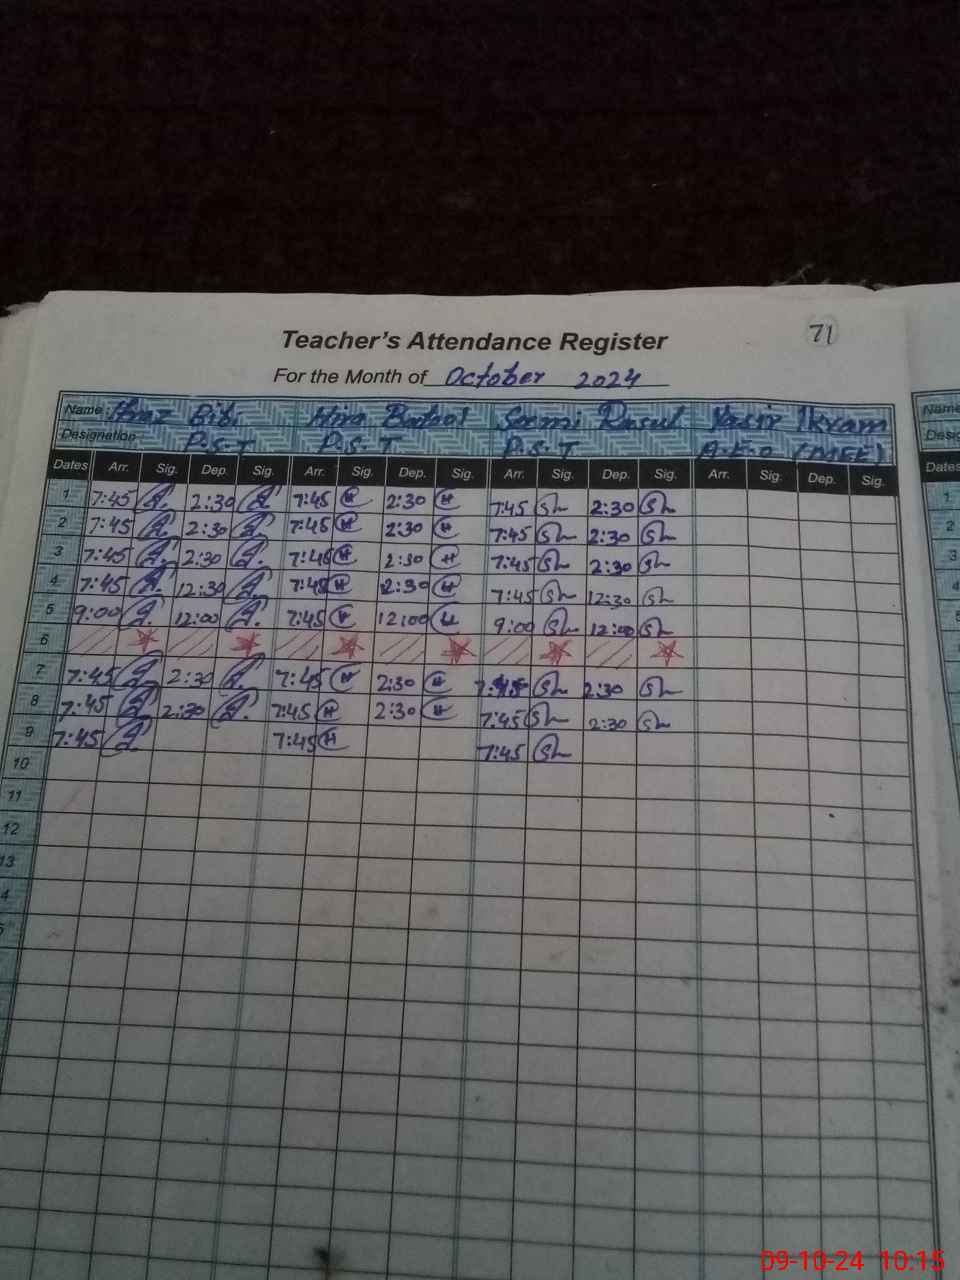 71
Teacher's Attendance Register
For the Month of October 2024
Name: Bibi Hira Batool Rasul Yasir Ikram Name
Designation P.S.T P.S.T P.S.T A.E.O (MEE) Desig
Dates Arr. Sig. Dep. Sig. Arr. Sig. Dep. Sig. Arr. Sig. Dep. Sig. Arr. Sig. Dep. Sig. Dates
1 7:45 2:30 7:45 H 2:30 H 7:45 Sh 2:30 Sh 1
2 7:45 2:30 7:45 H 2:30 H 7:45 Sh 2:30 Sh 2
3 7:45 2:30 7:45 H 2:30 H 7:45 Sh 2:30 Sh 3
4 7:45 12:30 7:45 H 2:30 H 7:45 Sh 12:30 Sh 4
5 9:00 12:00 7:45 H 12:00 H 9:00 Sh 12:00 Sh 5
6
7 7:45 2:30 7:45 H 2:30 H 7:45 Sh 2:30 Sh
8 7:45 2:30 7:45 H 2:30 H 7:45 Sh 2:30 Sh
9 7:45 7:45 H 7:45 Sh
10
11
12
13
4
5
09-10-24 10:15